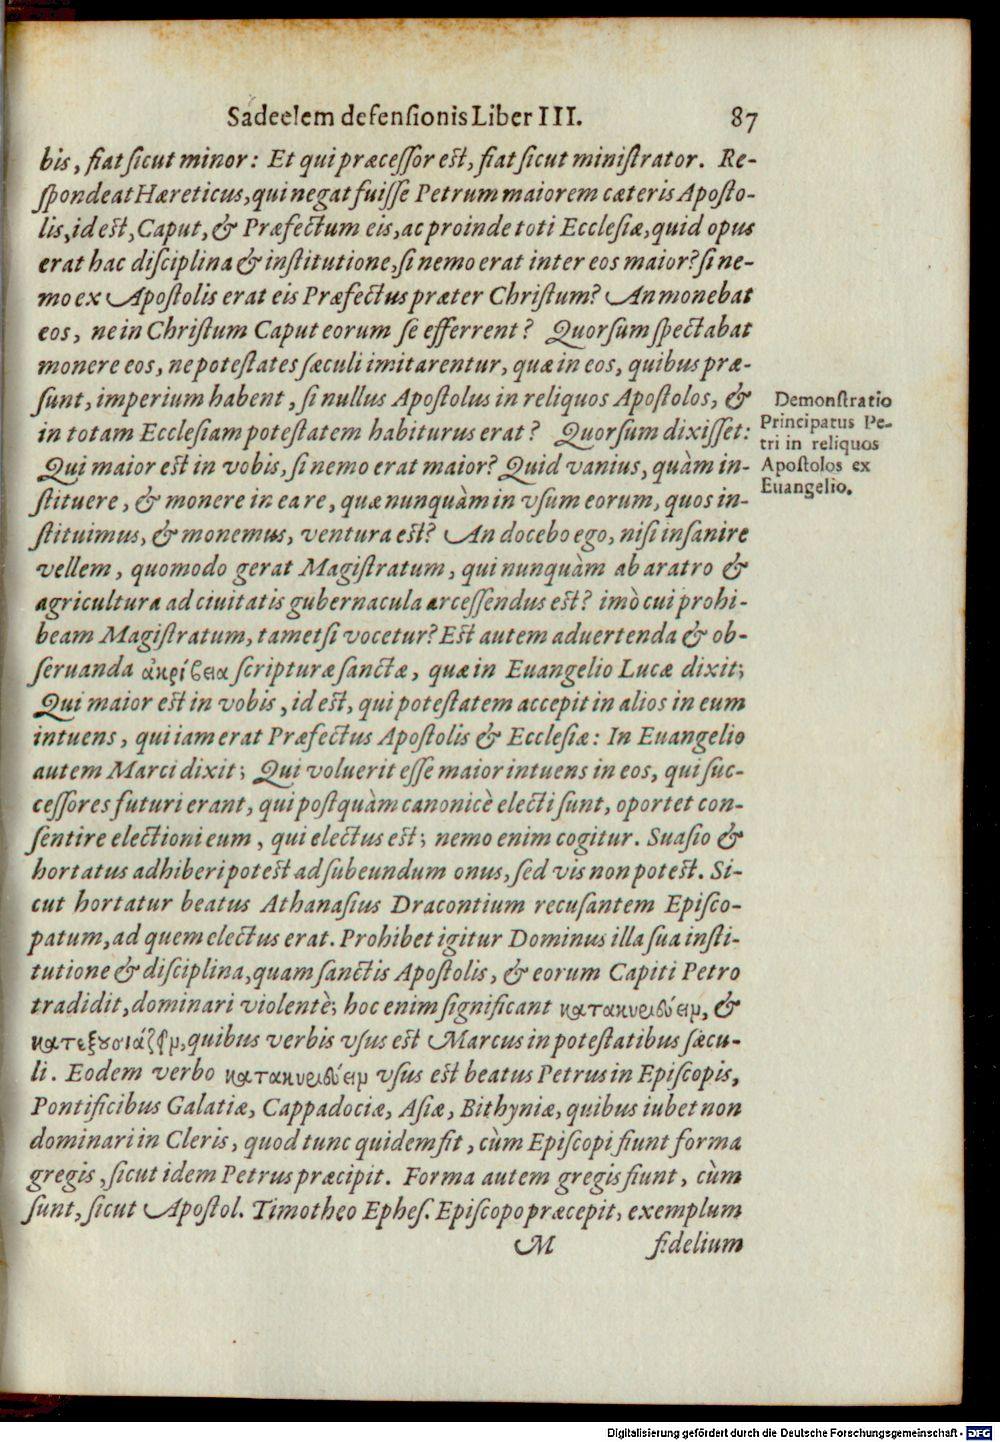 Sadeelem defensionis Liber III. 87
bis, fiat sicut minor: Et qui præcessor est, fiat sicut ministrator. Re-
spondeat Hæreticus, qui negat fuisse Petrum maiorem cæteris Aposto-
lis, id est, Caput, & Præfectum eis, ac proinde toti Ecclesiæ, quid opus
erat hac disciplina & institutione, si nemo erat inter eos maior? si ne-
mo ex Apostolis erat eis Præfectus præter Christum? An monebat
eos, ne in Christum Caput eorum se efferrent? Quorsum spectabat
monere eos, ne potestates sæculi imitarentur, quæ in eos, quibus præ-
sunt, imperium habent, si nullus Apostolus in reliquos Apostolos, &
in totam Ecclesiam potestatem habiturus erat? Quorsum dixisset:
Qui maior est in vobis, si nemo erat maior? Quid vanius, quàm in-
stituere, & monere in ea re, quæ nunquàm in vsum eorum, quos in-
stituimus, & monemus, ventura est? An docebo ego, nisi insanire
vellem, quomodo gerat Magistratum, qui nunquàm ab aratro &
agricultura ad ciuitatis gubernacula arcessendus est? imò cui prohi-
beam Magistratum, tametsi vocetur? Est autem aduertenda & ob-
seruanda ἀκρίβεια scripturæ sanctæ, quæ in Euangelio Lucæ dixit;
Qui maior est in vobis, id est, qui potestatem accepit in alios in eum
intuens, qui iam erat Præfectus Apostolis & Ecclesiæ: In Euangelio
autem Marci dixit; Qui voluerit esse maior intuens in eos, qui suc-
cessores futuri erant, qui postquàm canonicè electi sunt, oportet con-
sentire electioni eum, qui electus est; nemo enim cogitur. Suasio &
hortatus adhiberi potest ad subeundum onus, sed vis non potest. Si-
cut hortatur beatus Athanasius Dracontium recusantem Episco-
patum, ad quem electus erat. Prohibet igitur Dominus illa sua insti-
tutione & disciplina, quam sanctis Apostolis, & eorum Capiti Petro
tradidit, dominari violentè; hoc enim significant κατακυριεύειν, &
κατεξουσιάζειν, quibus verbis vsus est Marcus in potestatibus sæcu-
li. Eodem verbo κατακυριεύειν vsus est beatus Petrus in Episcopis,
Pontificibus Galatiæ, Cappadociæ, Asiæ, Bithyniæ, quibus iubet non
dominari in Cleris, quod tunc quidem fit, cùm Episcopi fiunt forma
gregis, sicut idem Petrus præcipit. Forma autem gregis fiunt, cùm
sunt, sicut Apostol. Timotheo Ephes. Episcopo præcepit, exemplum
M fidelium
Demonstratio
Principatus Pe-
tri in reliquos
Apostolos ex
Euangelio.
Digitalisierung gefördert durch die Deutsche Forschungsgemeinschaft - DFG